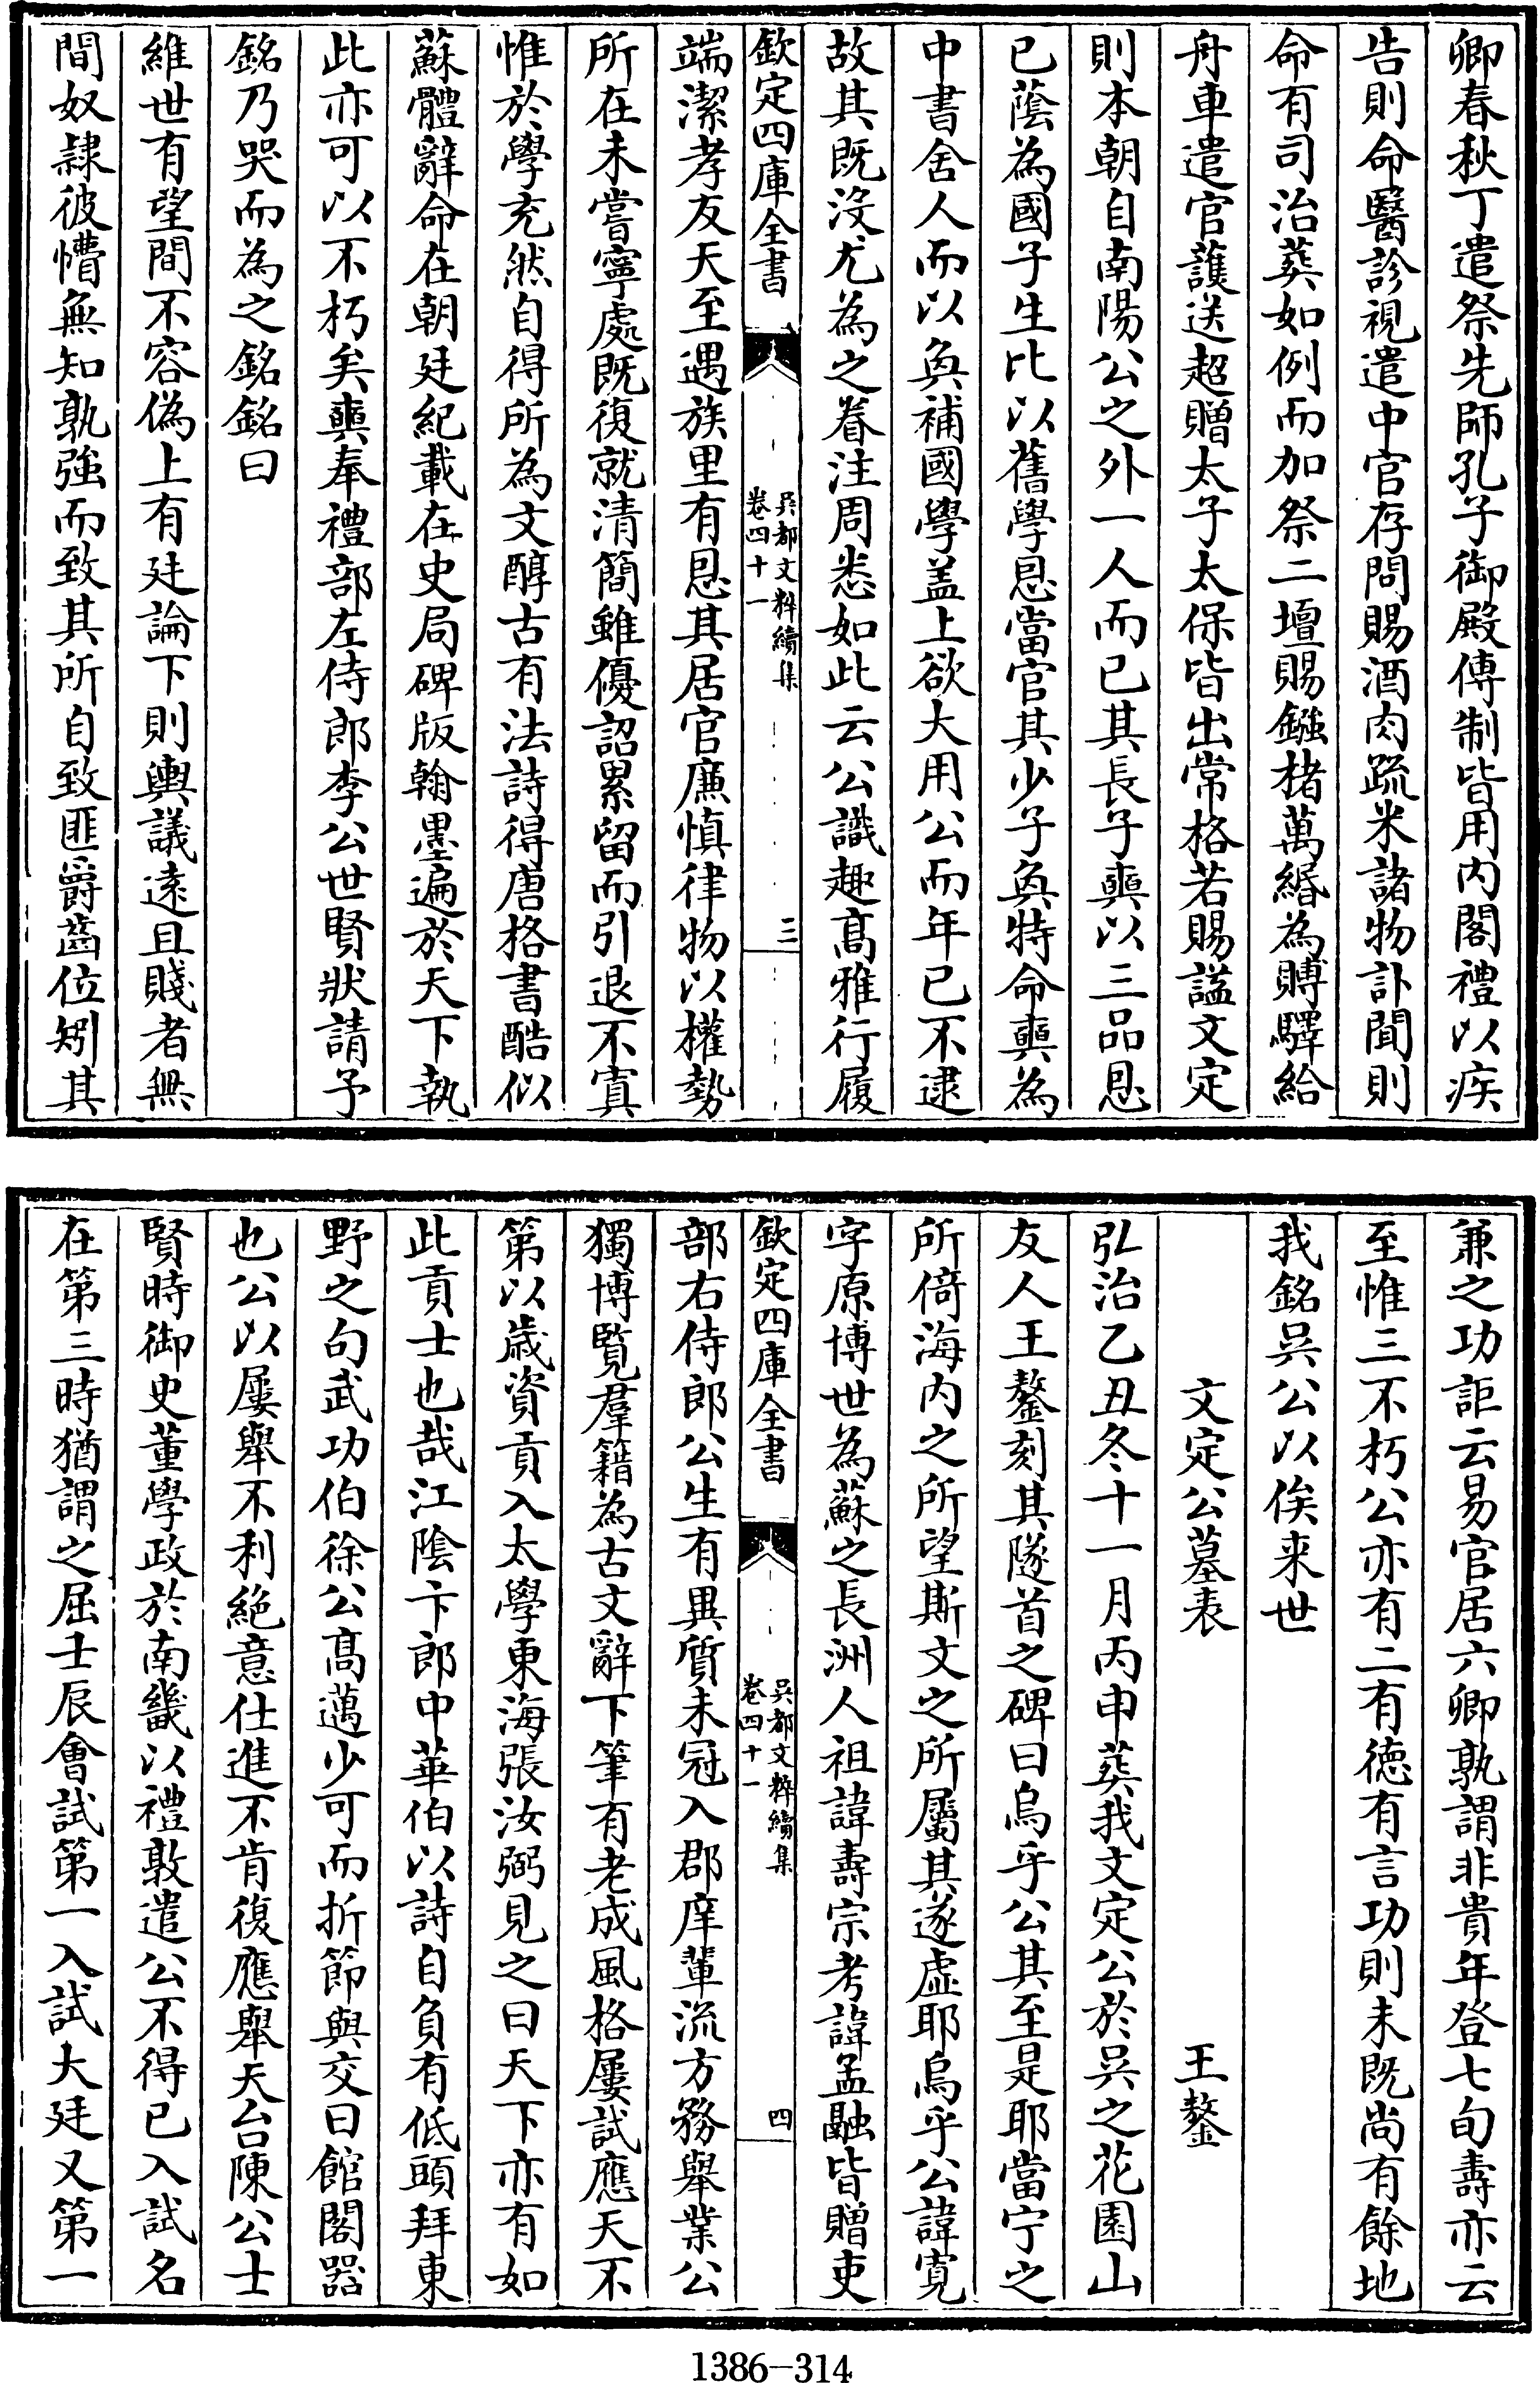 卿春秋丁遣祭先師孔子御殿傳制皆用内閣禮以疾
告則命醫診視遣中官存問賜酒肉蔬米諸物訃聞則
命有司治葬如例而加祭二壇賜鏹楮萬緡為賻驛給
舟車遣官護送超贈太子太保皆出常格若賜諡文定
則本朝自南陽公之外一人而已其長子奭以三品恩
已蔭為國子生比以舊學恩當官其少子奐特命奭為
中書舍人而以奐補國學盖上欲大用公而年已不逮
故其既沒尤為之眷注周悉如此云公識趣髙雅行履
欽定四庫全書
吳都文粹續集
卷四十一
三
端潔孝友天至遇族里有恩其居官廉慎律物以權勢
所在未嘗寧處既復就清簡雖優詔累留而引退不寘
惟於學充然自得所為文醇古有法詩得唐格書酷似
蘇體辭命在朝廷紀載在史局碑版翰墨遍於天下執
此亦可以不朽矣奭奉禮部左侍郎李公世賢狀請予
銘乃哭而為之銘銘曰
維世有望間不容偽上有廷論下則輿議遠且賤者無
間奴隷彼懵無知孰強而致其所自致匪爵齒位矧其
兼之功詎云易官居六卿孰謂非貴年登七旬壽亦云
至惟三不朽公亦有二有徳有言功則未既尚有餘地
我銘吳公以俟来世
文定公墓表
王鏊
弘治乙丑冬十一月丙申葬我文定公於吳之花園山
友人王鏊刻其隧首之碑曰烏乎公其至是耶當宁之
所倚海内之所望斯文之所屬其遂虚耶烏乎公諱寛
字原博世為蘇之長洲人祖諱壽宗考諱孟融皆贈吏
欽定四庫全書
吳都文粹續集
卷四十一
四
部右侍郎公生有異質未冠入郡庠輩流方務舉業公
獨博覽羣籍為古文辭下筆有老成風格屢試應天不
第以歳資貢入太學東海張汝弼見之曰天下亦有如
此貢士也哉江陰卞郎中華伯以詩自負有低頭拜東
野之句武功伯徐公髙邁少可而折節與交曰館閣器
也公以屢舉不利絶意仕進不肯復應舉天台陳公士
賢時御史董學政於南畿以禮敦遣公不得已入試名
在第三時猶謂之屈壬辰會試第一入試大廷又第一
1386-314